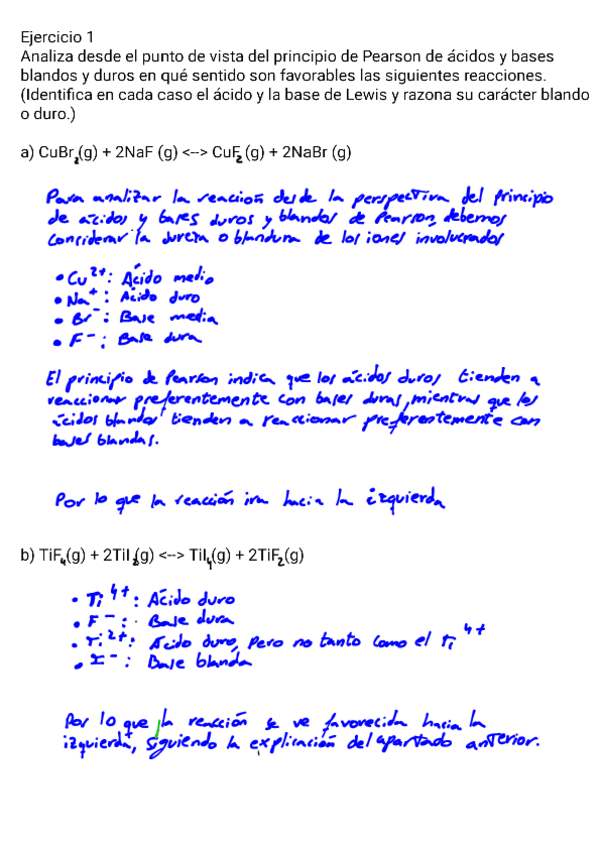 Ejercicio 1
Analiza desde el punto de vista del principio de Pearson de ácidos y bases
blandos y duros en qué sentido son favorables las siguientes reacciones.
(Identifica en cada caso el ácido y la base de Lewis y razona su carácter blando
o duro.)
a) CuBr₂(g) + 2NaF (g) <--> CuF₂ (g) + 2NaBr (g)
Para analizar la reacción desde la perspectiva del principio
de ácidos y bases duros y blandos de Pearson, debemos
considerar la dureza o blandura de los iones involucrados
• Cu²⁺: Ácido medio
• Na⁺: Ácido duro
• Br⁻: Base media
• F⁻: Base dura
El principio de Pearson indica que los ácidos duros tienden a
reaccionar preferentemente con bases duras, mientras que los
ácidos blandos tienden a reaccionar preferentemente con
bases blandas.
Por lo que la reacción ira hacia la izquierda
b) TiF₄(g) + 2TiI₂(g) <--> TiI₄(g) + 2TiF₂(g)
• Ti⁴⁺: Ácido duro
• F⁻: Base dura
• Ti²⁺: Ácido duro, pero no tanto como el Ti⁴⁺
• I⁻: Base blanda
Por lo que la reacción se ve favorecida hacia la
izquierda, siguiendo la explicación del apartado anterior.